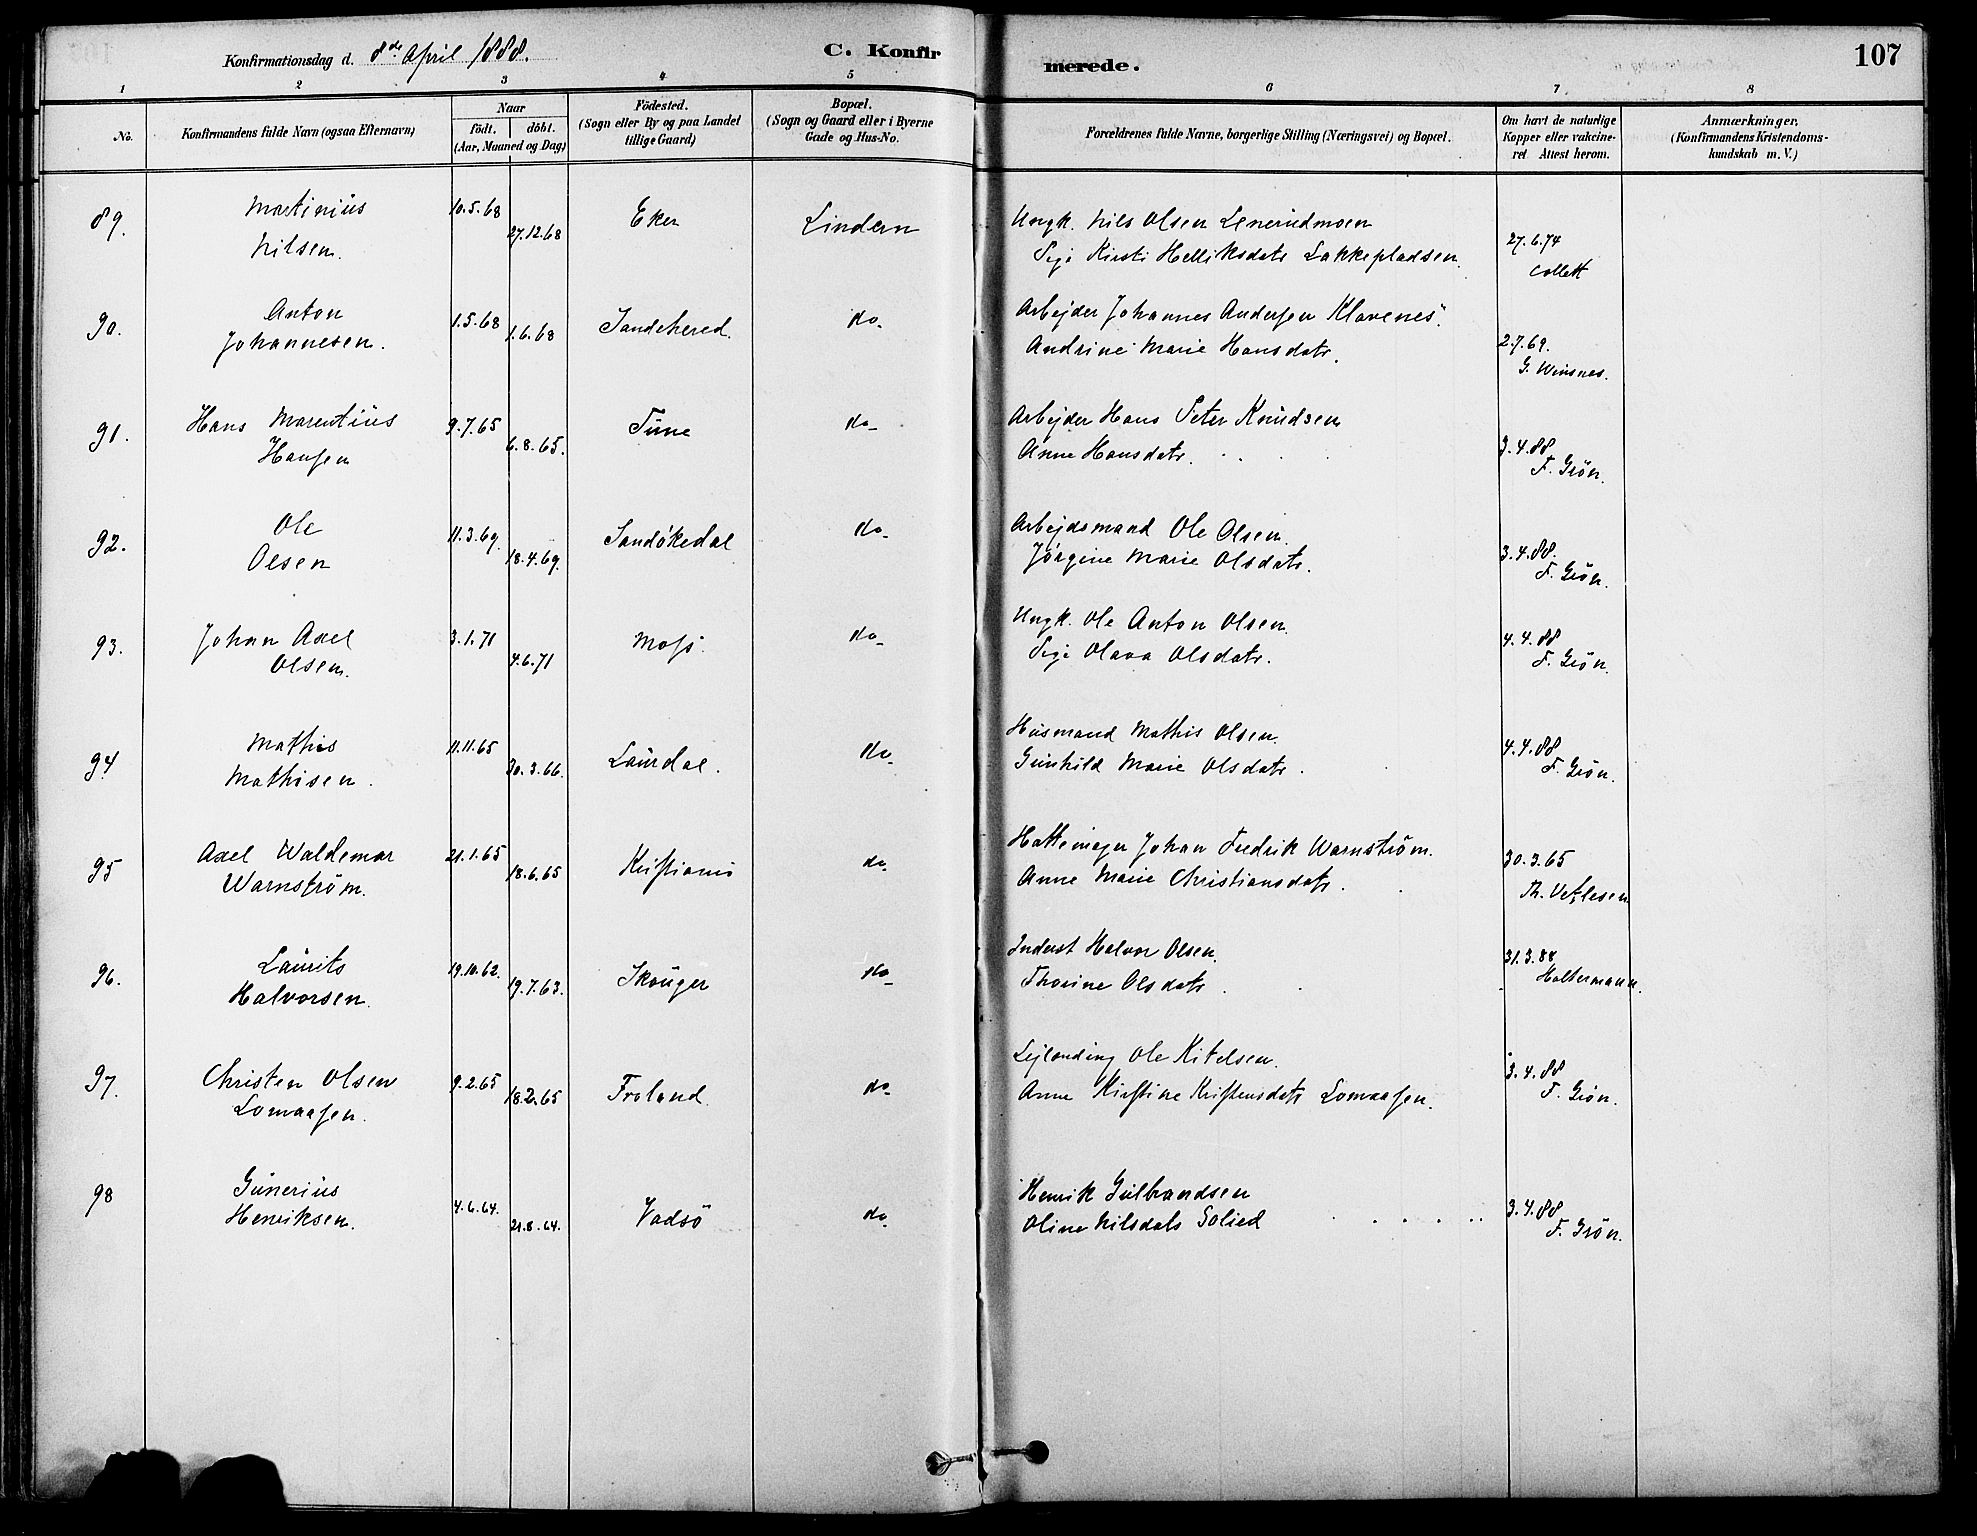 107
Konfirmationsdag d. 8de April 1888.
C. Konfirmerede.
1 2 3 4 5 6 7 8
No.
Konfirmandens fulde Navn (ogsaa Efternavn)
Naar
födt. döbt.
(Aar, Maaned og Dag)
Födested.
(Sogn eller By og paa Landet
tillige Gaard)
Bopæl.
(Sogn og Gaard eller i Byerne
Gade og Hus-No.
Forældrenes fulde Navne, borgerlige Stilling (Næringsvei) og Bopæl.
Om havt de naturlige
Kopper eller vakcine-
ret Attest herom.
Anmærkninger.
(Konfirmandens Kristendoms-
kundskab m. V.)
89. Martinius 10.5.68 Eker Lindern Ungk. Nils Olsen Lenerudmoen
Nilsen. 27.12.68 Pige Kirsti Helliksdatr Lakkepladsen. 27.6.74
Collett
90. Anton 1.5.68 Sandehered. do. Arbejder Johannes Andersen Klavenes.
Johannesen. 1.6.68 Andrine Marie Hansdatr. 2.7.69.
G. Winsnes.
91. Hans Marentius 9.7.65 Tune do. Arbejder Hans Peter Knudsen
Hansen 6.8.65. Anne Hansdatr. 3.4.88
F. Grön.
92. Ole 11.3.69. Sandökedal do. Arbejdsmand Ole Olsen.
Olsen 18.4.69. Jörgine Marie Olsdatr. 3.4.88.
F. Grön.
93. Johan Axel 3.1.71 Moss. do. Ungk. Ole Anton Olsen. 4.4.88
Olsen. 4.6.71 Pige Olava Olsdatr. F. Grön.
94 Mathis 11.11.65 Laurdal. do. Husmand Mathis Olsen. 4.4.88
Mathisen. 30.3.66. Gunhild Marie Olsdatr. F. Grön.
95 Axel Waldemar 21.1.65 Kristiania do. Hattemager Johan Fredrik Warnström. 30.3.65
Warnström. 18.6.65 Anne Marie Christiansdatr. Th. Vetlesen
96. Laurits 19.10.62. Skouger do. Inderst Halvor Olsen. 31.3.88
Halvorsen. 19.7.63. Thorine Olsdatr. Holtermann.
97. Christen Olsen 9.2.65 Froland. do. Lejlending Ole Kitelsen. 3.4.88
Lomaasen. 18.2.65 Anne Kirstine Kristensdatr Lomaasen. F. Grön.
98 Gunerius 4.6.64. Vadsö do. Henrik Gulbrandsen 3.4.88
Henriksen. 21.8.64. Oline Nilsdatr Solied F. Grön.